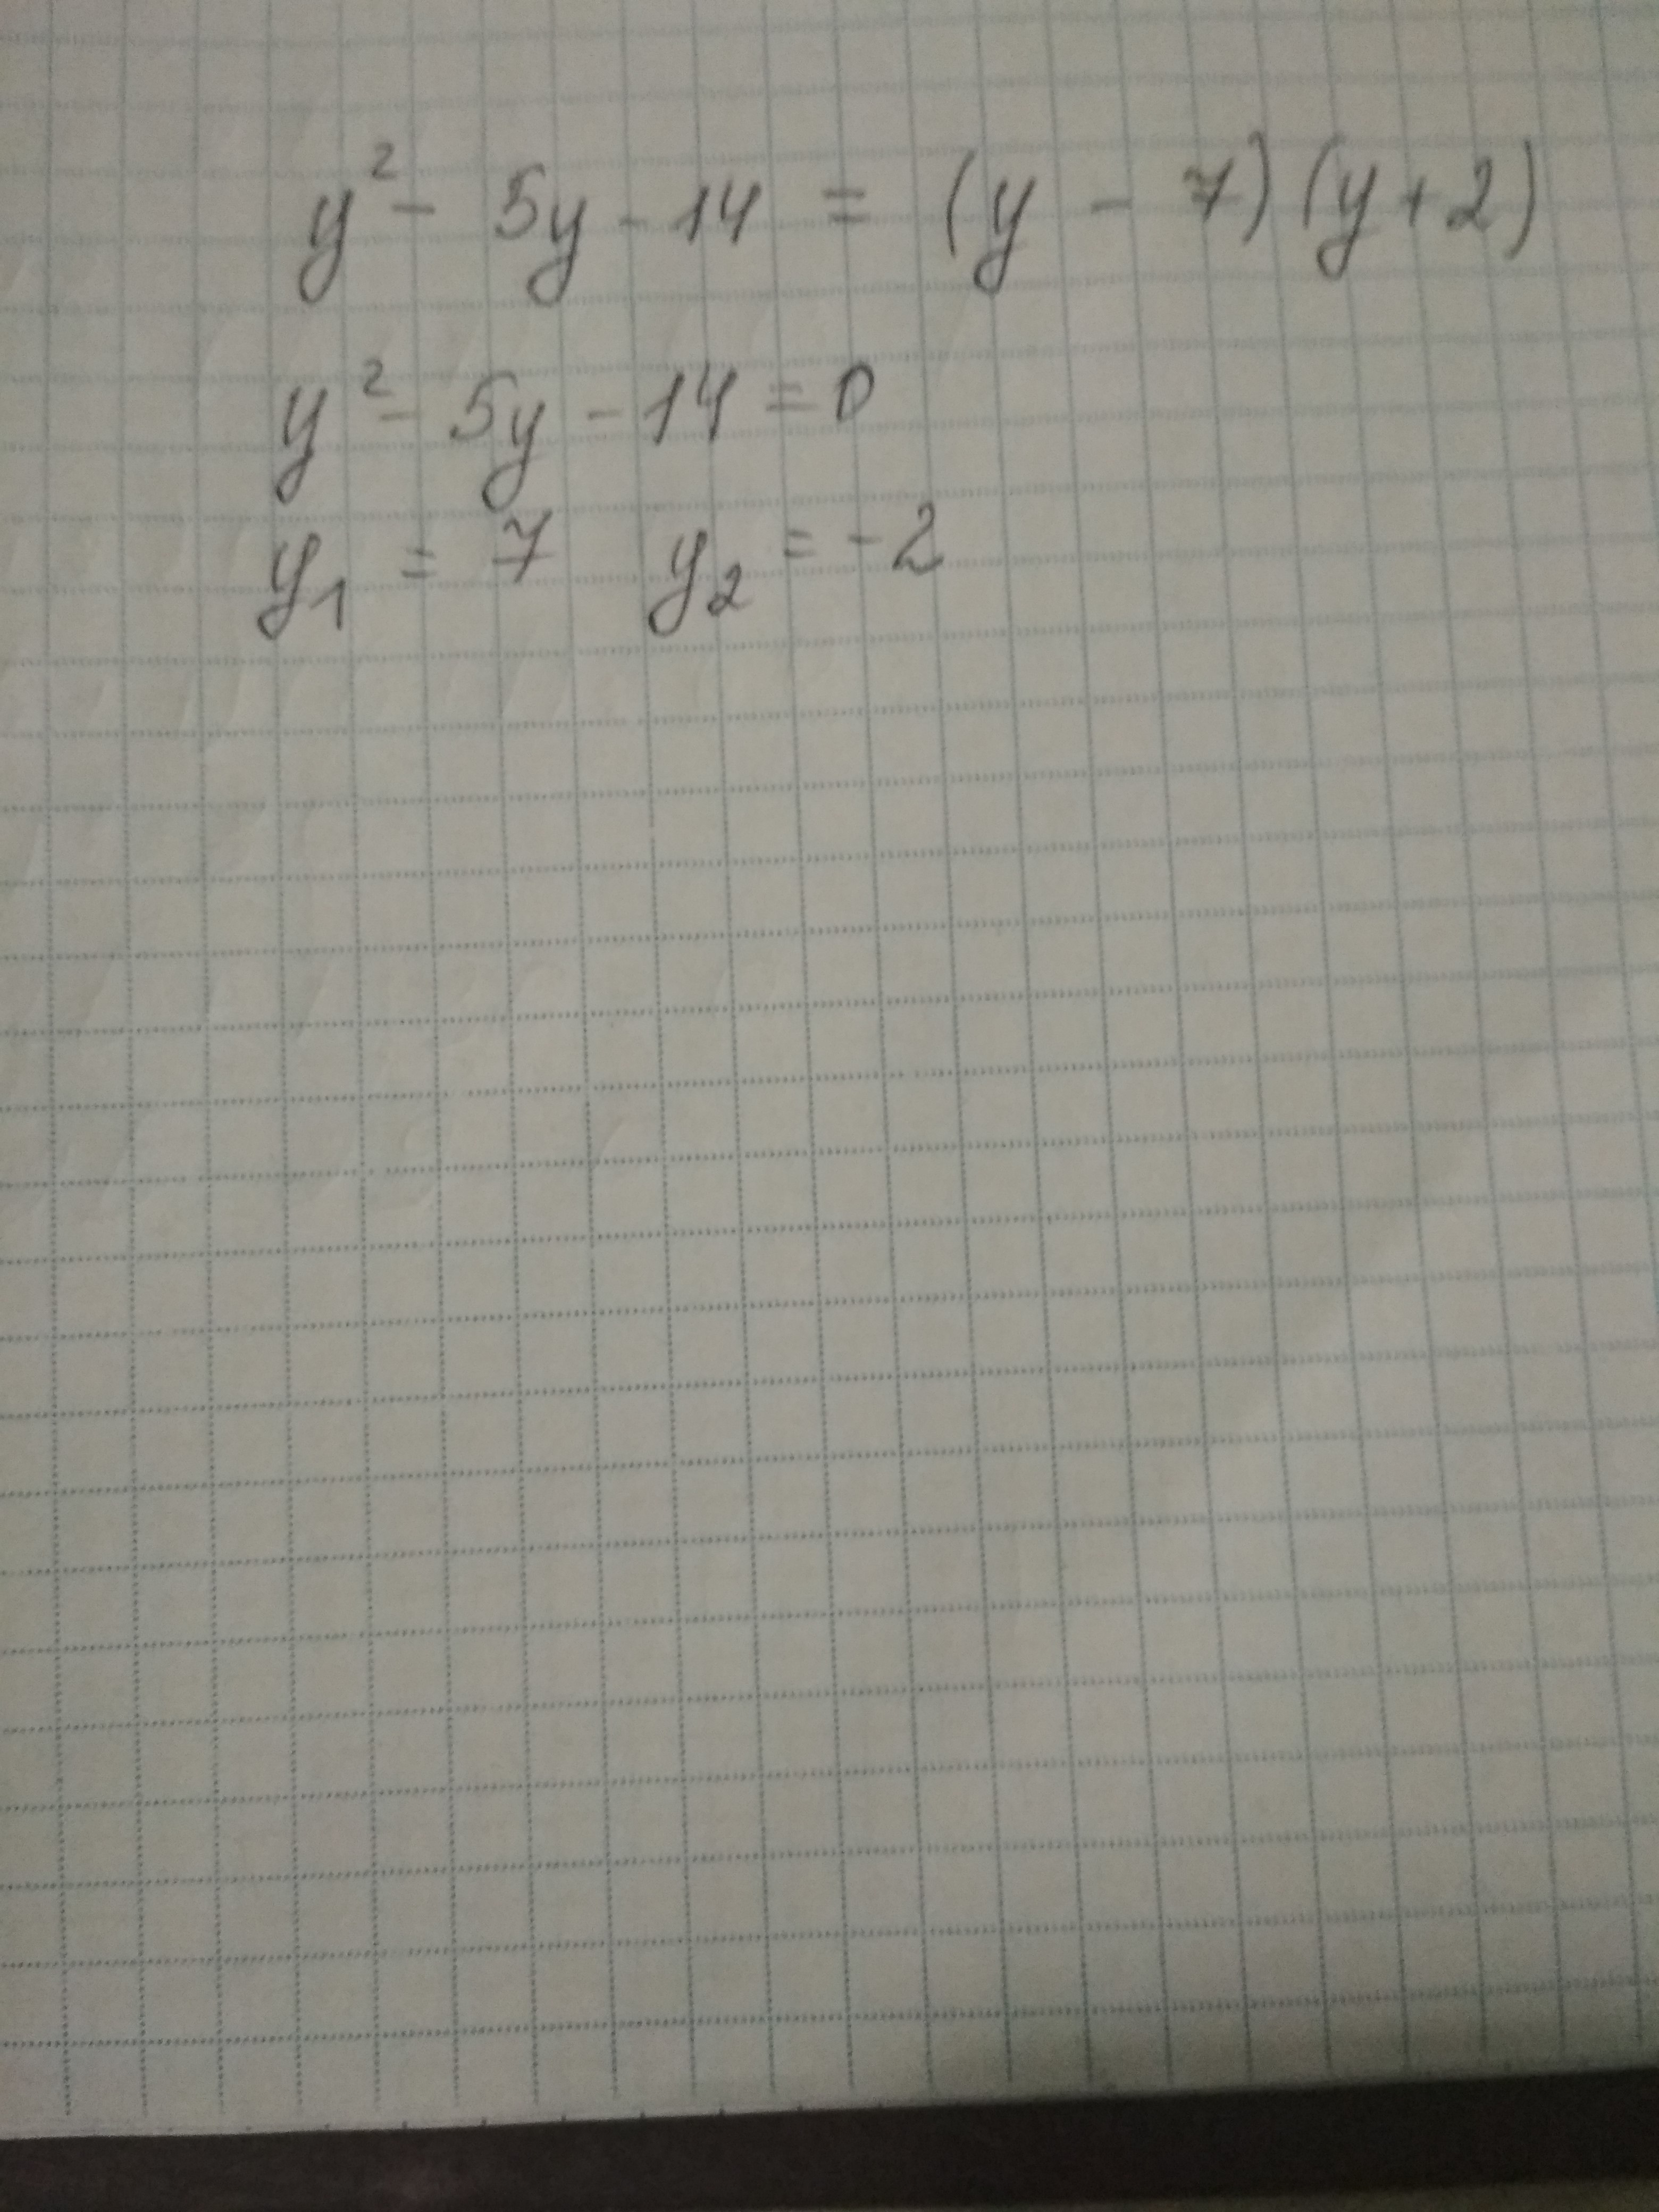 y² - 5y - 14 = (y - 7)(y + 2)
y² - 5y - 14 = 0
y₁ = 7 y₂ = -2